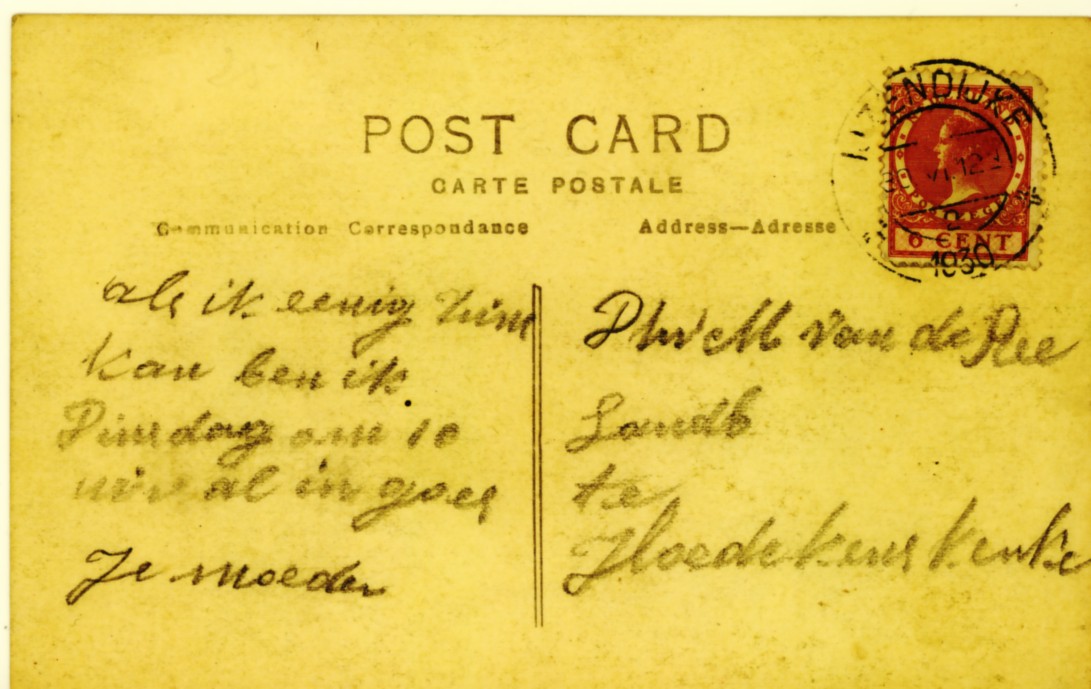 POST CARD
CARTE POSTALE
Communication Correspondance
Address—Adresse
1930
6 CENT
als ik eenig
kan ben ik
Dinsdag om 10
uur al in goes
Je moeder
van de Ree
Landb
te
Hoedekenskerke